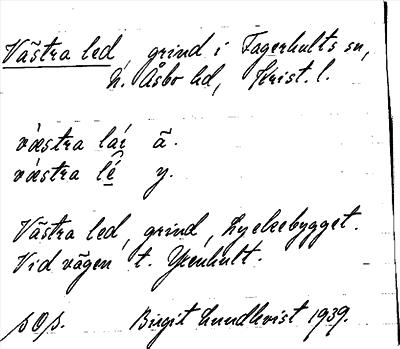 Västra led, grind i Fagerhults sn,
N. Åsbo hd, Krist. l.
væstra laí ä.
væstra lé y.
Västra led, grind, Lyckebygget.
Vid vägen t. Yxenhult.
sOs. Birgit Lundkvist 1939.